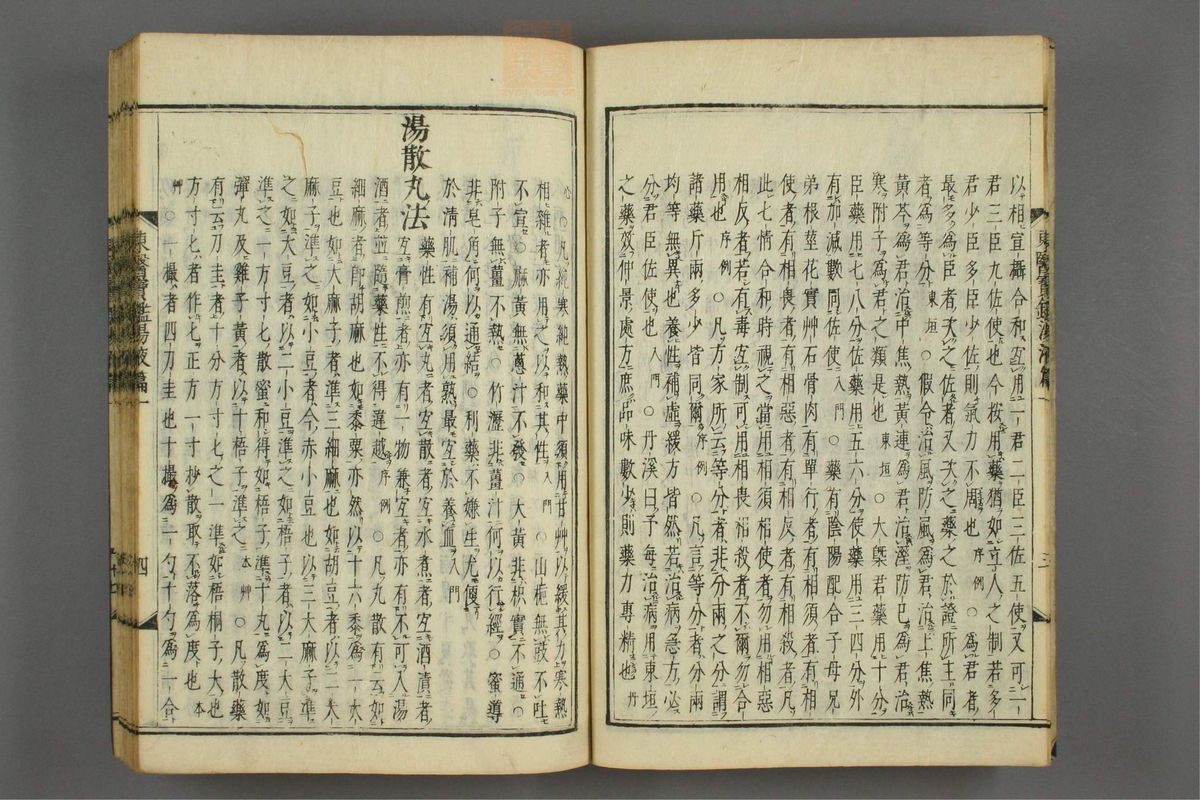 以相宣攝合和宜用一君二臣三佐五使又可一
君三臣九佐使也今按用藥猶如立人之制若多
君少臣多臣少佐則氣力不周也序例○爲君者
最多爲臣者次之佐者又次之藥之於證所主同
者爲等分東垣○假令治風防風爲君治上焦熱
黃芩爲君治中焦熱黃連爲君治濕防已爲君治
寒附子爲君之類是也東垣○大槩君藥用十分
臣藥用七八分佐藥用五六分使藥用三四分外
有加減數同佐使入門○藥有陰陽配合子母兄
弟根莖花實艸石骨肉有單行者有相須者有相
使者有相畏者有相惡者有相反者有相殺者凡
此七情合和時視之當用相須相使者勿用相惡
相反者若有毒宜制可用相畏相殺者不爾勿合
用也序例○凡方家所云等分者非分兩之分謂
諸藥斤兩多少皆同爾序例○凡言等分者分兩
均等無異也養性補虛緩方皆然若治病急方必
分君臣佐使也入門○丹溪曰予每治病用東垣
之藥效仲景處方庶品味數少則藥力專精也丹
東醫寶鑑湯液篇一
三
心○凡純寒純熱藥中須用甘艸以緩其力寒熱
相雜者亦用之以和其性入門○山梔無豉不吐
不宣○麻黃無蔥汁不發○大黃非枳實不通○
附子無薑不熱○竹瀝非薑汁何以行經○蜜導
非皂角何以通結○利藥不嫌生尤偃
於清肌補湯須用熟最宜於養血入門
湯散丸法
藥性有宜丸者宜散者宜水煮者宜酒漬者
宜膏煎者亦有一物兼宜者亦有不可入湯
酒者並隨藥性不得違越序例○凡丸散有云如
細麻者卽胡麻也如黍粟亦然以十六黍爲一大
豆也如大麻子者準三細麻也如胡豆者以二大
麻子準之如小豆者今赤小豆也以三大麻子準
之如大豆者以二小豆準之如梧子者以二大豆
準之一方寸匕散蜜和得如梧子準十丸爲度如
彈丸及雞子黃者以十梧子準之本艸○凡散藥
有云刀圭者十分方寸匕之一準如梧桐子大也
方寸匕者作匕正方一寸抄散取不落爲度也本
艸○一撮者四刀圭也十撮爲一勺十勺爲一合
東醫寶鑑湯液篇一
四